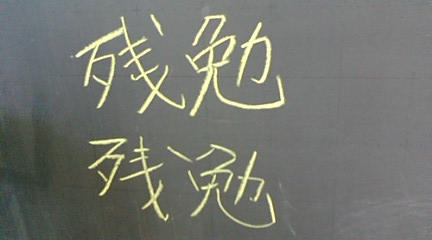 残勉
残勉